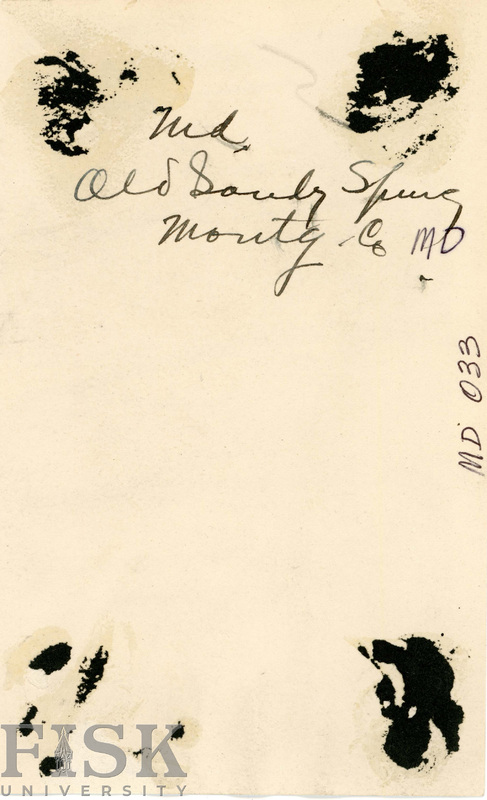 Md.
Old Sandy Spring
Montg Co MD
MD 033
FISK
UNIVERSITY